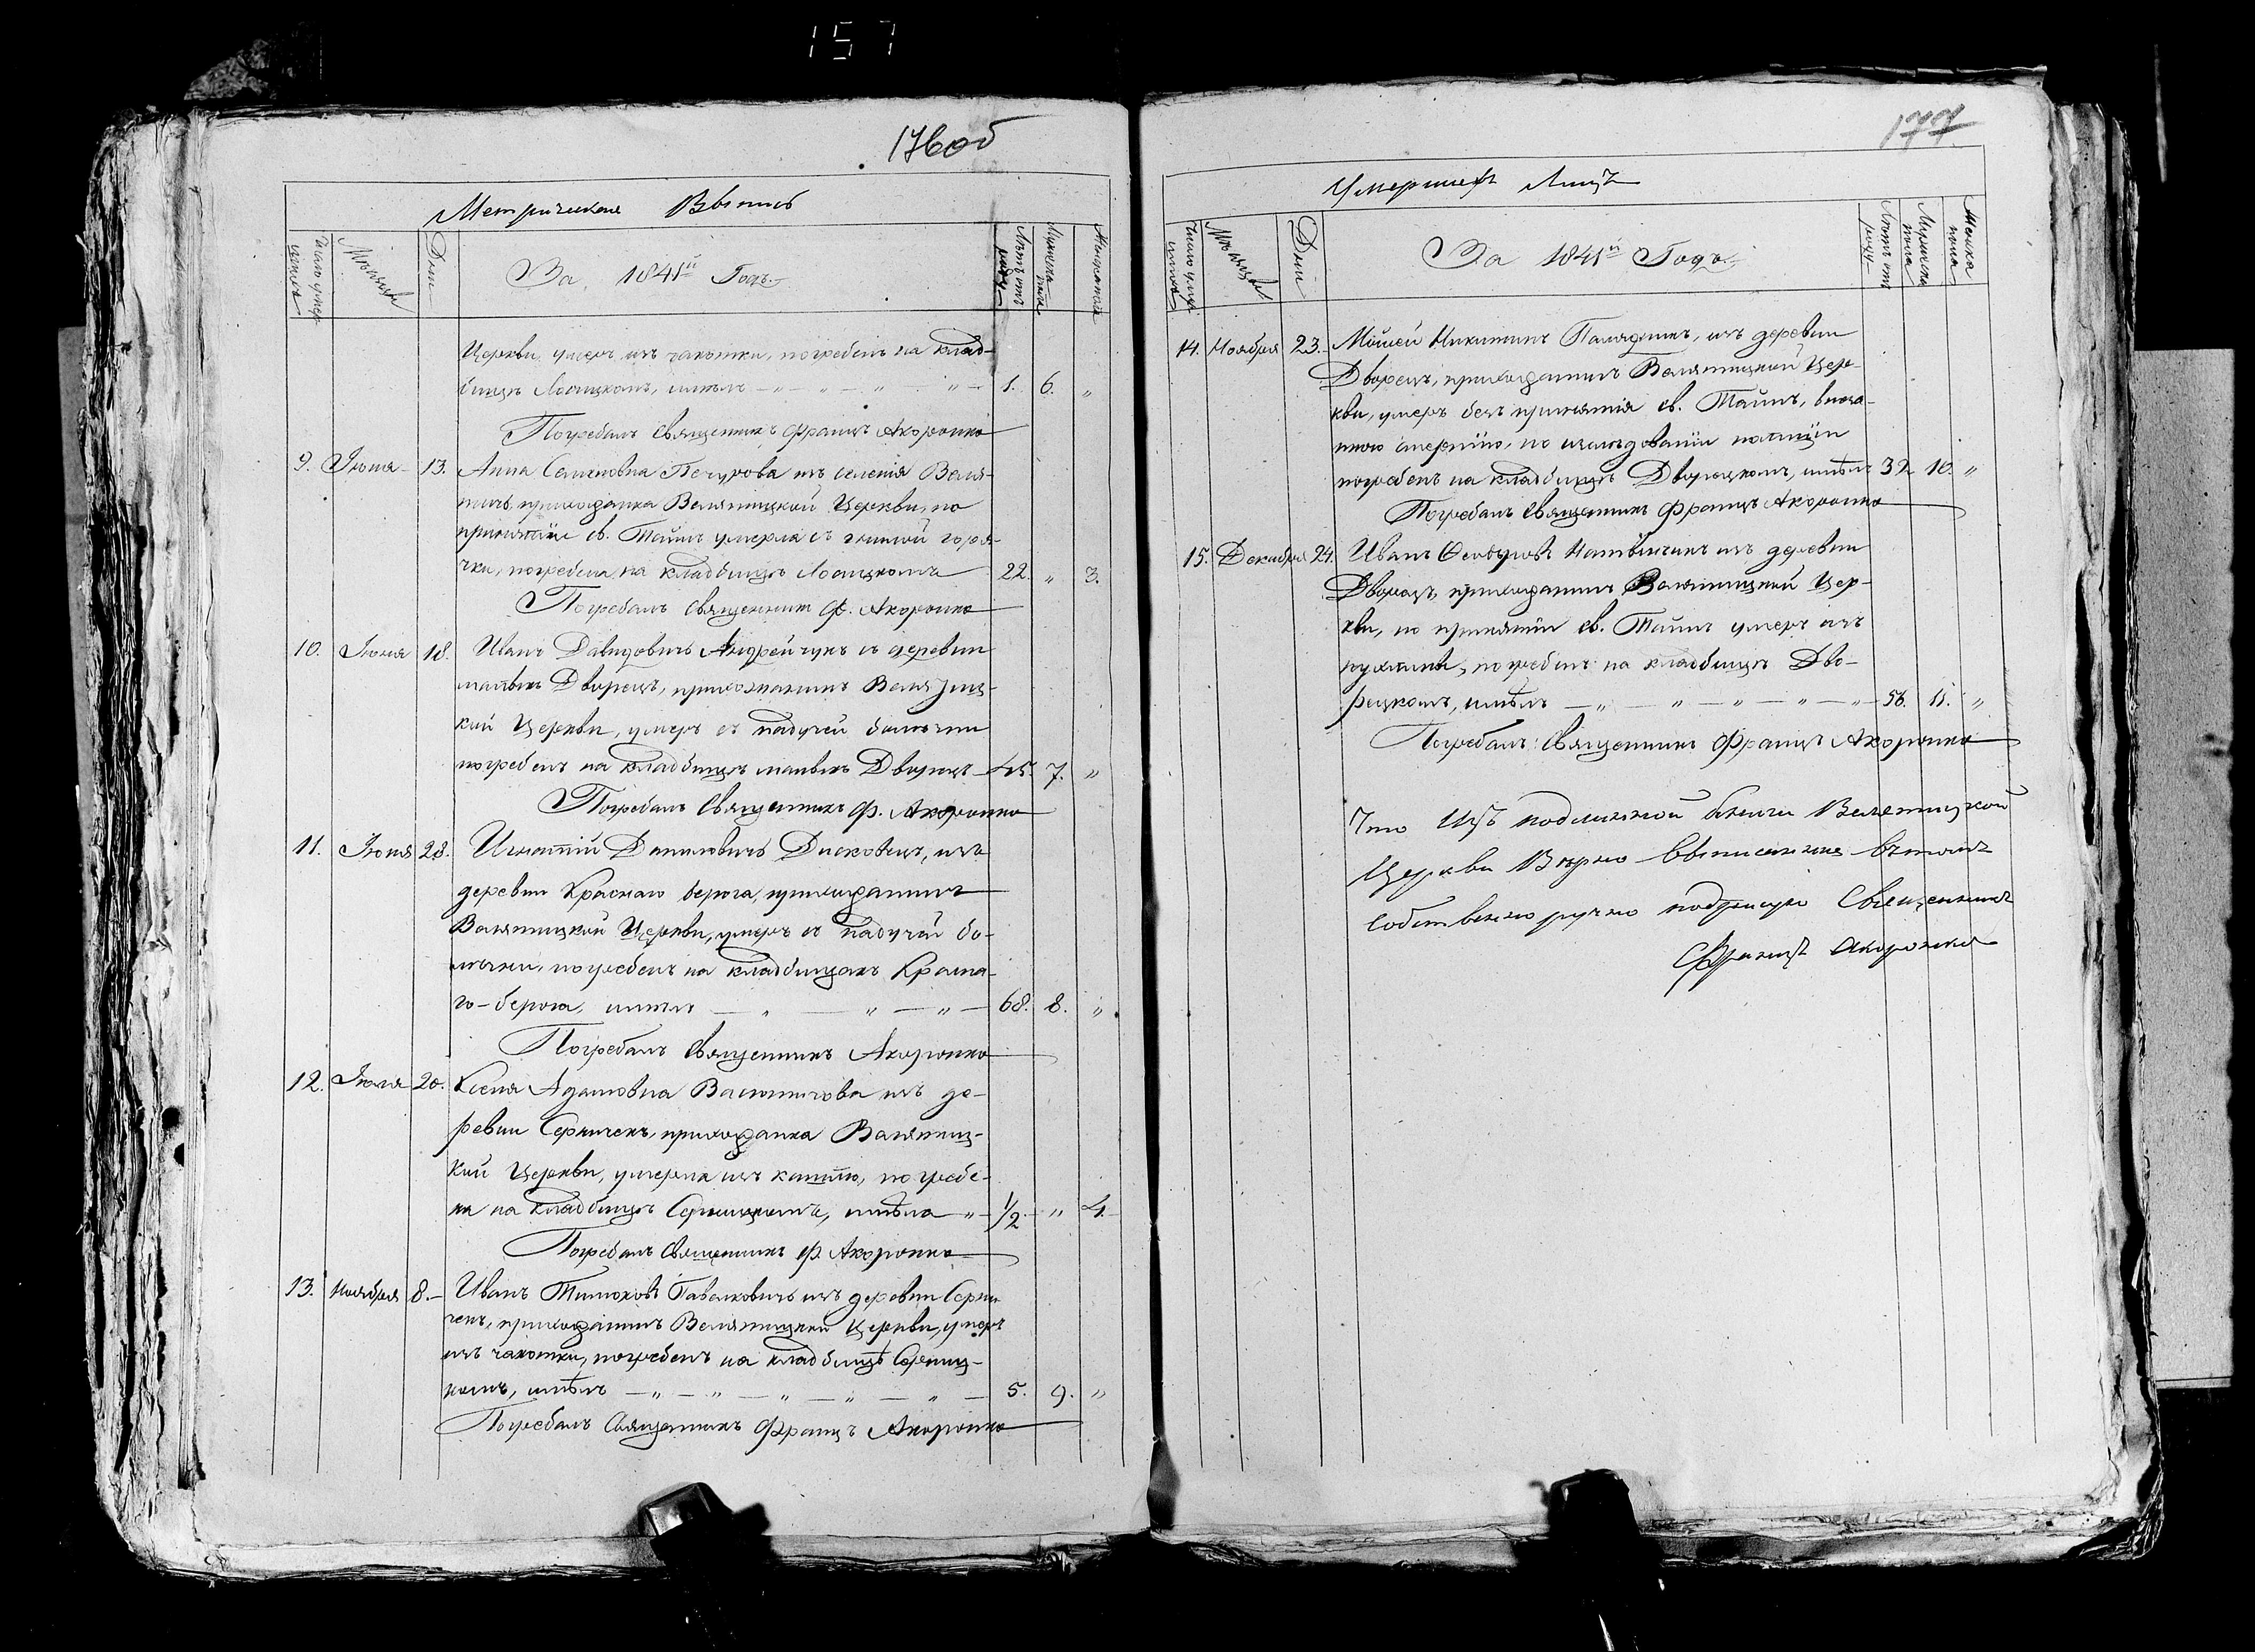 157
176об
Метрическая Выпись
Число умер
шихъ
Мѣсяцы
Дни
За 1841й Годъ.
Лѣтъ отъ
роду
Мужеска
пола
Женска пола
Церкви, умеръ изъ чахотки, погребенъ на клад-
бищѣ Лосицкомъ, имѣлъ — „ — „ — „ „ — 1. 6. „
Погребалъ Священникъ Францъ Акоронко
9. Іюня 13. Анна Семеновна Печурова изъ селенія Веля-
тичъ, прихожанка Велятицкой Церкви, по
принятіи св. Тайнъ умерла съ гнилой горя-
чки, погребена на кладбищѣ Лосицкомъ 22. „ 3.
Погребалъ Священникъ Ф. Акоронко
10. Іюня 18. Иванъ Давидовичъ Андрейчукъ съ деревни
малыхъ Дворецъ, прихожанинъ Велятиц-
кой Церкви, умеръ съ падучей болѣзни
погребенъ на кладбищѣ малыхъ Дворецъ — 45. 7. „
Погребалъ Священникъ Ф. Акоронко
11. Іюня 28. Игнатій Даниловичъ Дисковецъ, изъ
деревни Краснаго берега, прихожанинъ
Велятицкой Церкви, умеръ съ падучей бо-
лѣзни, погребенъ на кладбищахъ Красна-
го-берега, имѣлъ — „ — „ — „ — 68. 8. „
Погребалъ Священникъ Акоронко
12. Іюля 20. Ксенія Адамовна Василичова изъ де-
ревни Серничекъ, прихожанка Велятиц-
кой Церкви, умерла изъ кашлю, погребе-
на на кладбищѣ Серницкомъ, имѣла „ — 1/2. „ 4.
Погребалъ Священникъ Ф. Акоронко
13. Ноября 8. Иванъ Тимоховъ Павлковичъ изъ деревни Серни
чекъ, прихожанинъ Велятицкой Церкви, умеръ
изъ чахотки, погребенъ на кладбищѣ Серниц-
комъ, имѣлъ — „ — „ — „ — „ — „ — 5. 9. „
Погребалъ Священникъ Францъ Акоронко
177
Умершихъ Лицъ
Число умер
шихъ
Мѣсяцы
Дни
За 1841й Годъ.
Лѣтъ отъ
роду
Мужеска
пола
Женска
пола
14. Ноября 23. Мойсей Никитинъ Палядникъ, изъ деревни
Дворецъ, прихожанинъ Велятицкой Цер-
кви, умеръ безъ принятія св. Тайнъ, внеза-
пною смертію, по изслѣдованіи полиціи
погребенъ на кладбищѣ Дворецкомъ, имѣлъ 32 10. „
Погребалъ Священникъ Францъ Акоронко
15. Декабря 24. Иванъ изъ деревни
Дворецъ, прихожанинъ Велятицкой Цер-
кви, по принятіи св. Тайнъ умеръ изъ
пухлины, погребенъ на кладбищѣ Дво-
рецкомъ, имѣлъ — „ — „ — „ — „ — „ — 56. 11. „
Погребалъ: Священникъ Францъ Акоронко
Что Изъ подлинной Книги Велятицкой
Церкви Вѣрно выписанние въ томъ
собственноручно подписую Священникъ
Францъ Акоронко